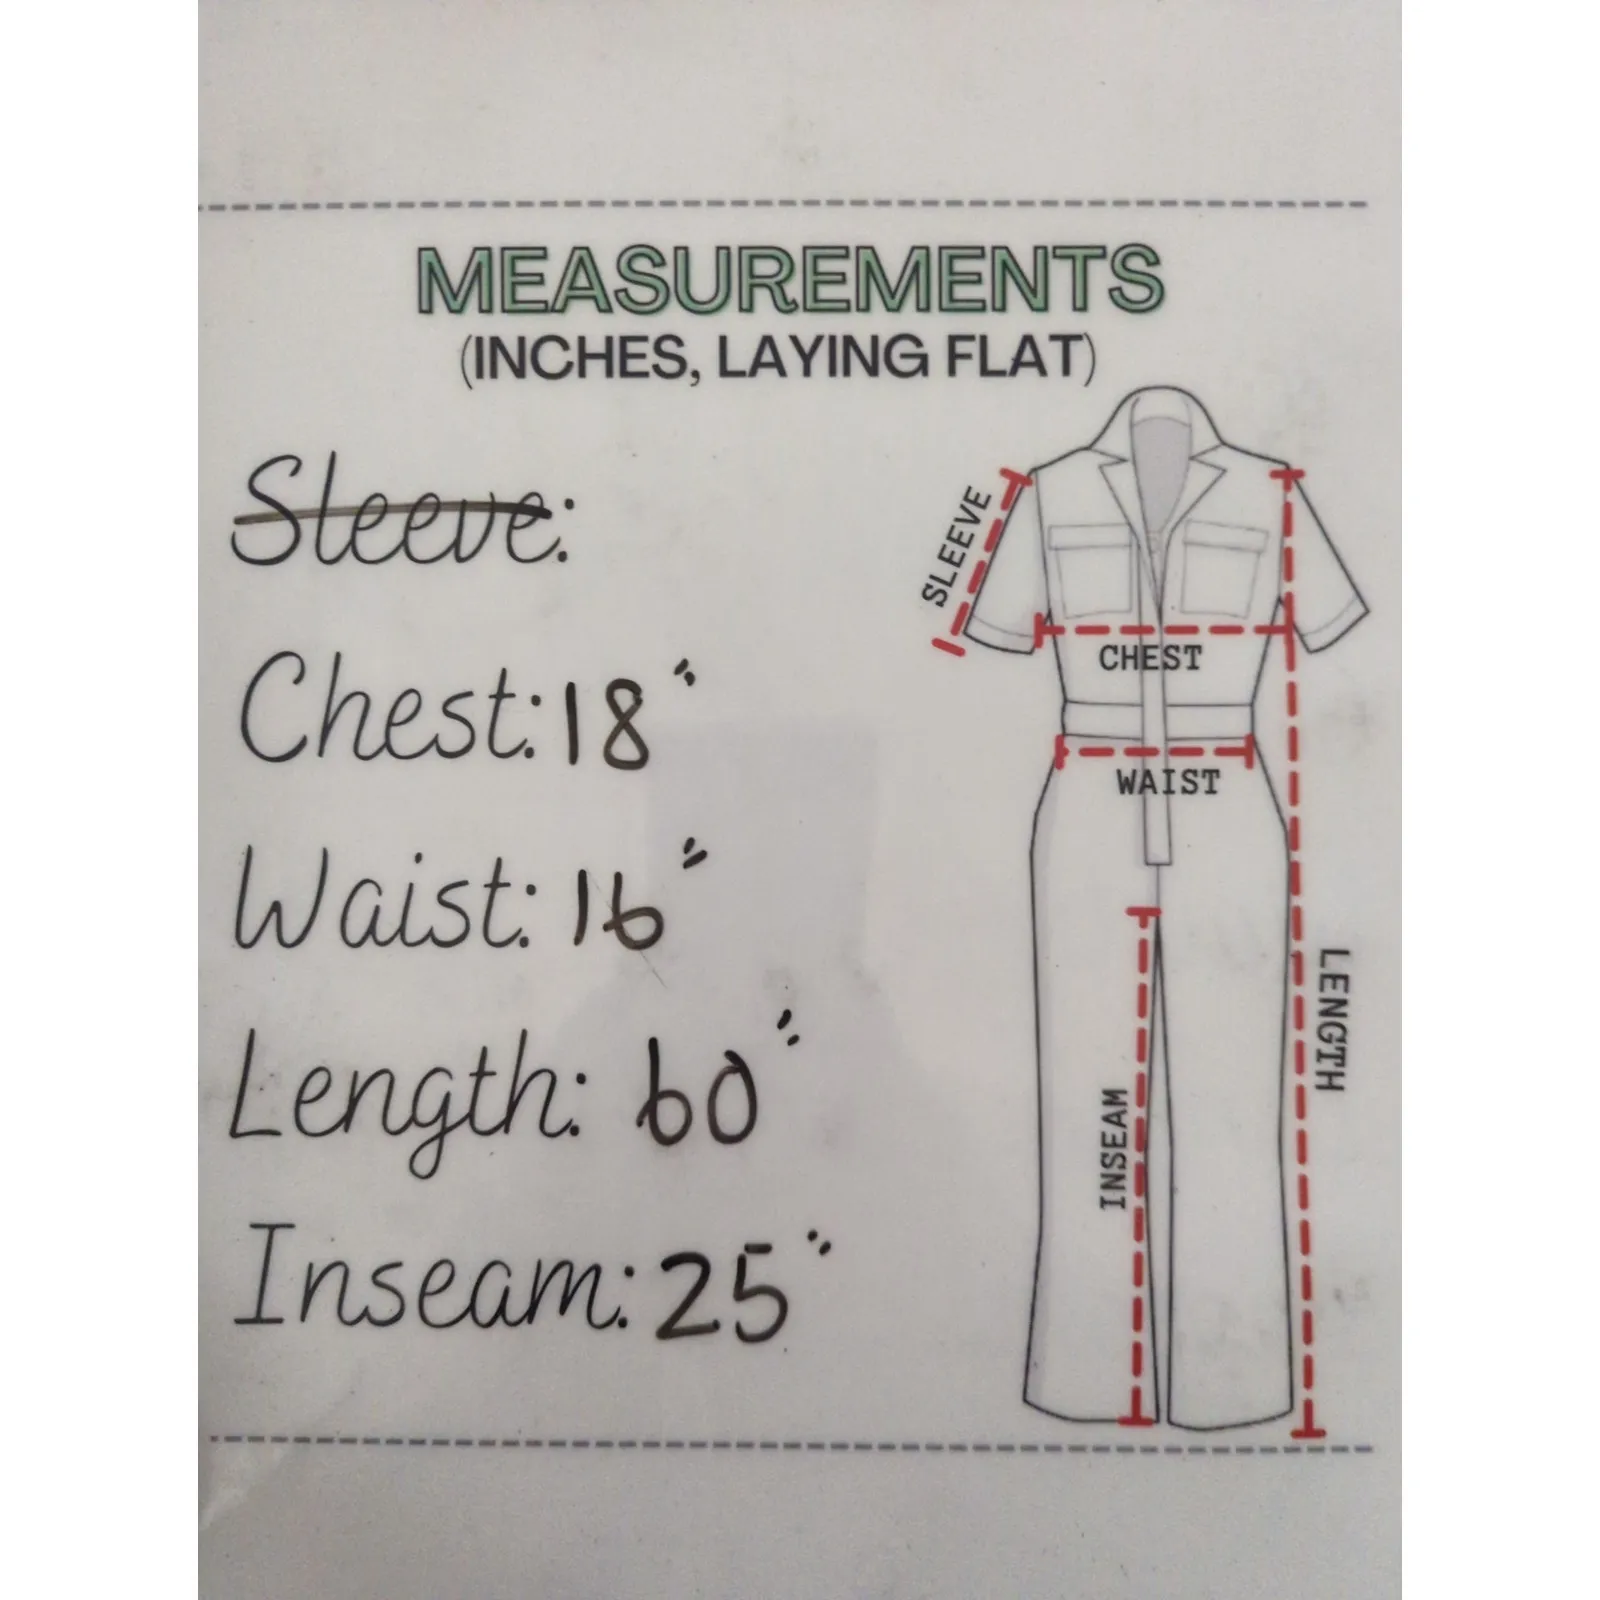 MEASUREMENTS
(INCHES, LAYING FLAT)
Sleeve:
Chest: 18"
Waist: 16"
Length: 60"
Inseam: 25"
SLEEVE
CHEST
WAIST
INSEAM
LENGTH